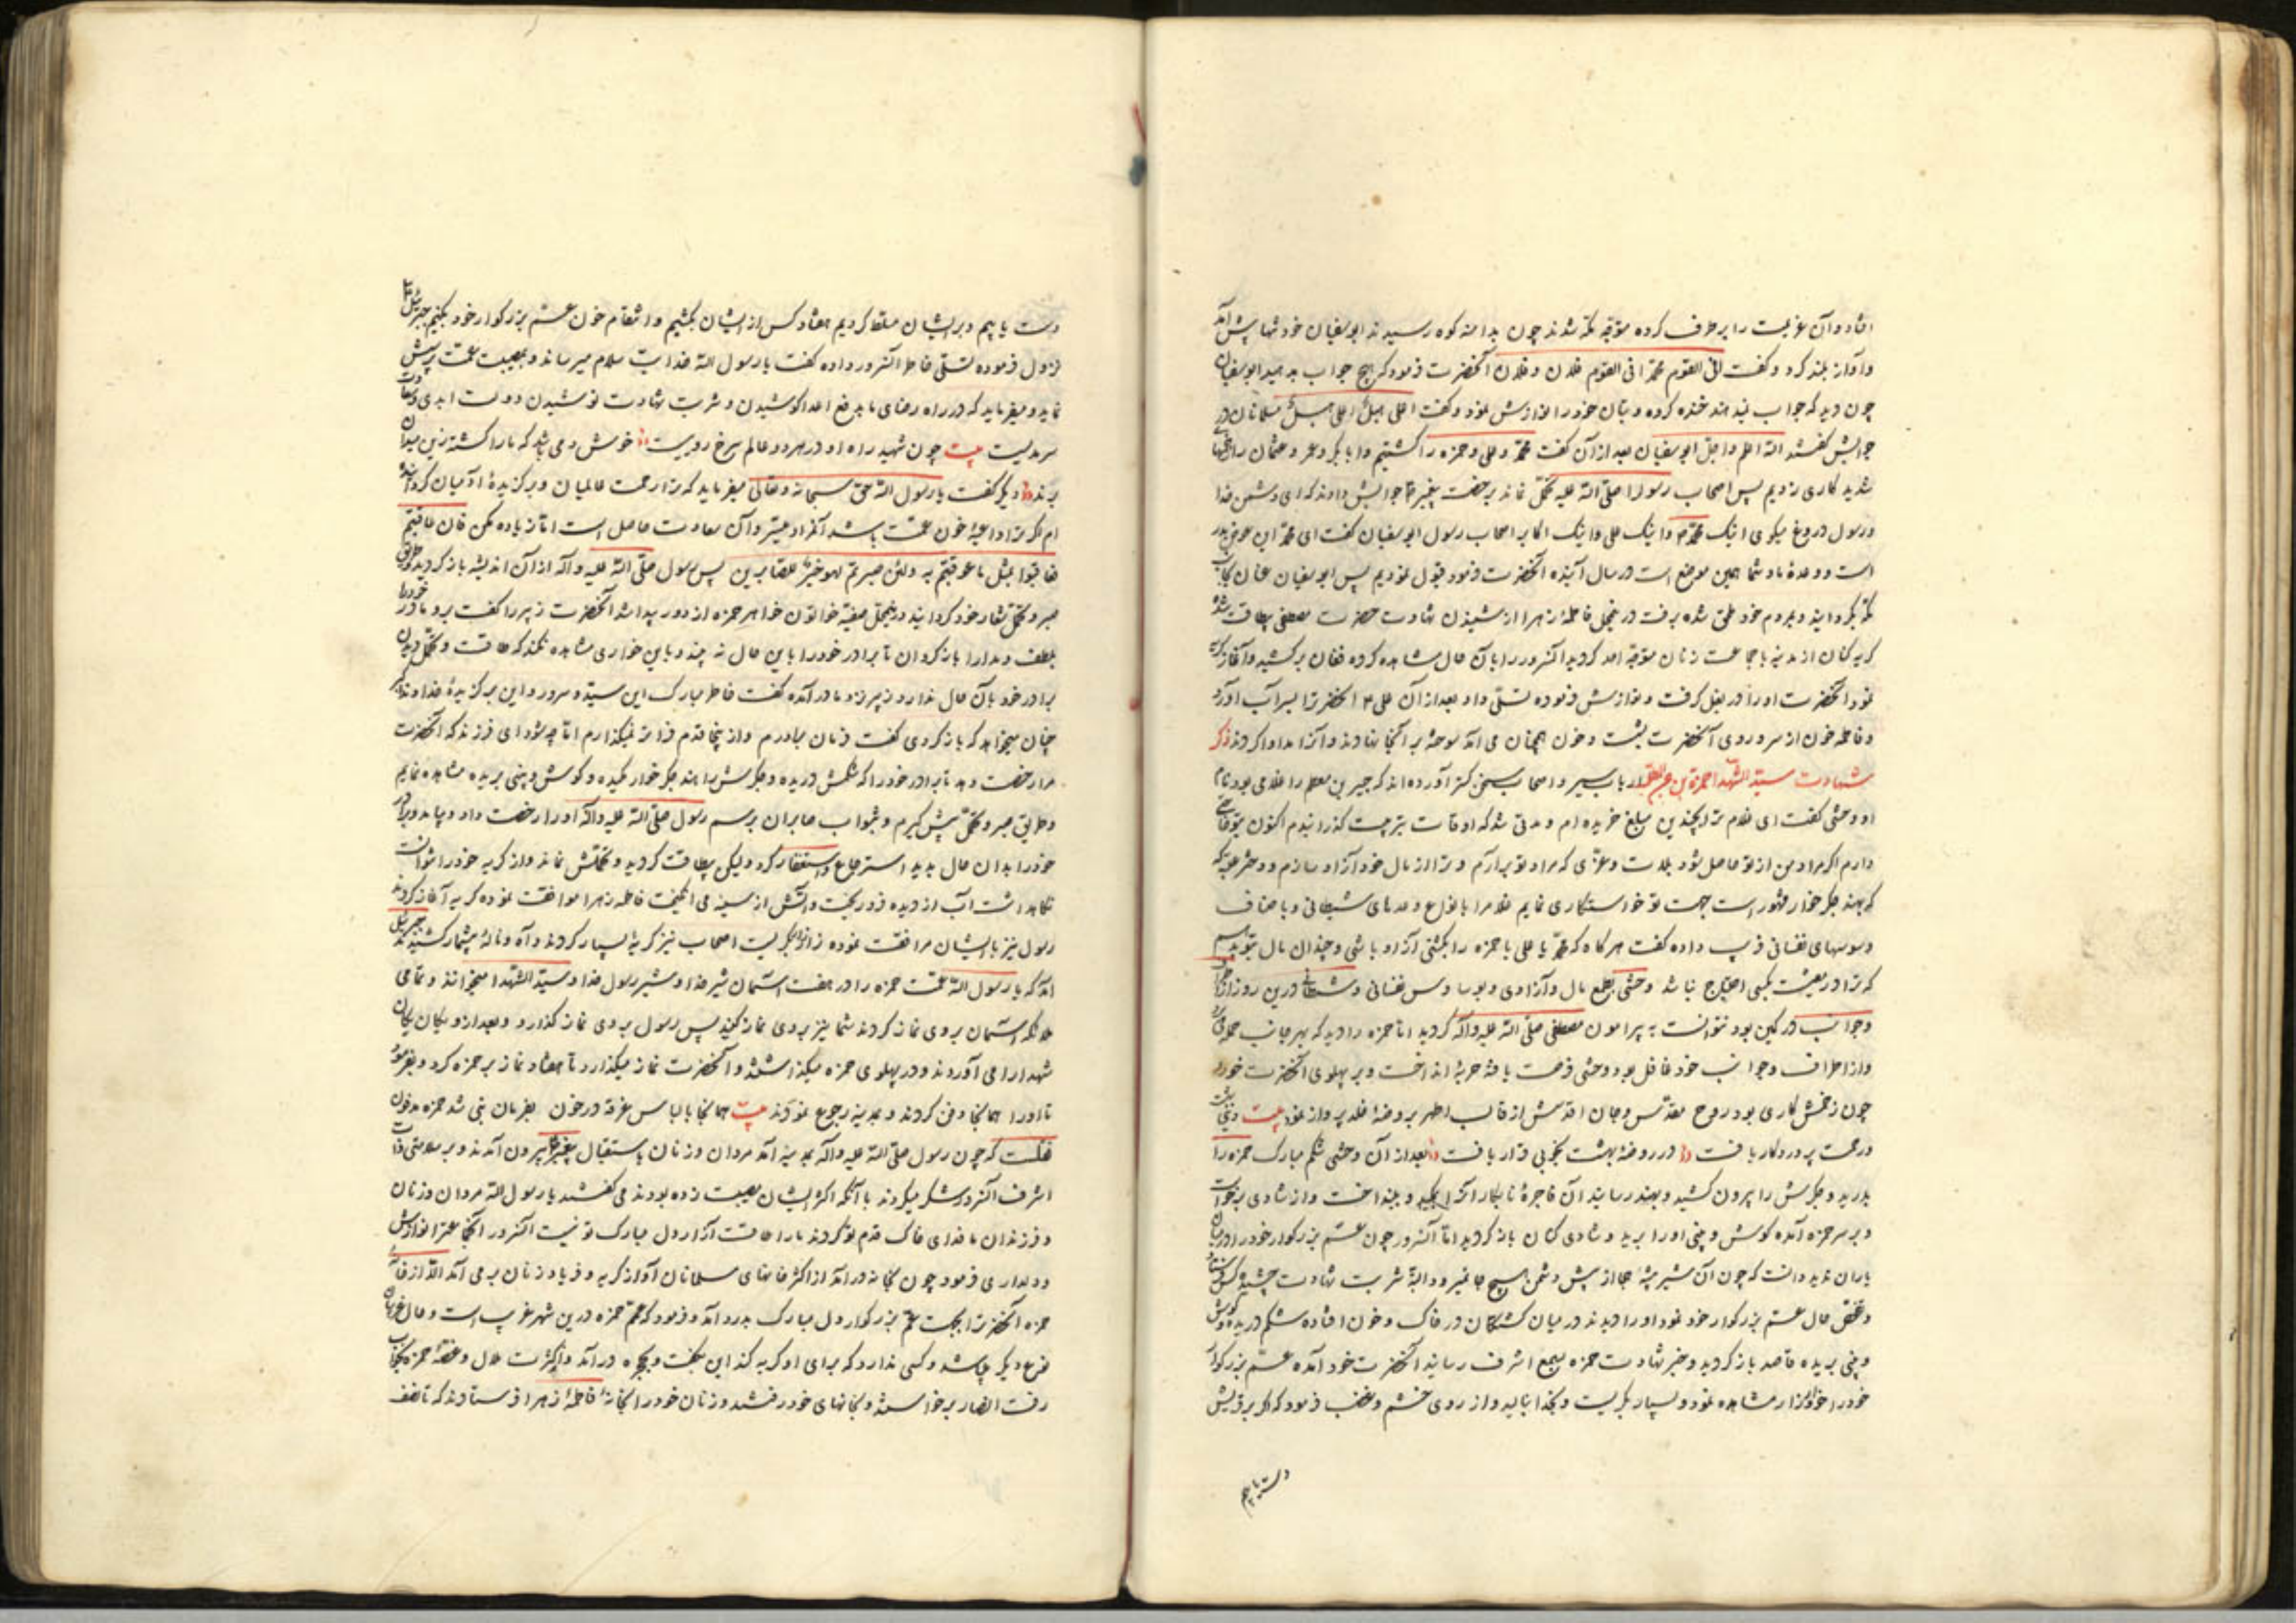 افتاد و آن عزیمت را بر طرف کرده متوجه مکه شدند چون بدامنه کوه رسیدند ابوسفیان خود تنها پیش آمد
و آواز بلند کرد و گفت افی القوم محمد افی القوم فلان و فلان آنحضرت فرمود که هیچ جواب مدهید ابوسفیان
چون دید که جواب نمیدهند خنده کرده و بتان خود را نوازش نمود و گفت اعلی هبل اعلی هبل مسلمانان در
جوابش گفتند الله اعلم و اجل ابوسفیان بعد از آن گفت محمد و علی و حمزه را کشتیم و ابابکر و عمر و عثمان را
شدید کاری زدیم پس اصحاب رسولرا صلی الله علیه تحمل نماند برخصت پیغمبر جوابش دادند که ای دشمن خدا
و رسول دروغ میگوی اینک محمد و اینک علی و اینک اکابر اصحاب رسول ابوسفیان گفت ای محمد این عوض بدر
است و وعدهٔ ما و شما همین موضع است در سال آینده آنحضرت فرمود قبول نمودیم پس ابوسفیان عنان بجانب
مکه بگردانید و بمردم خود ملحق شده برفت درینمحل فاطمهٔ زهرا از شنیدن شهادت حضرت مصطفی بیطاقت شده
گریه کنان از مدینه با جماعت زنان متوجه احد گردید آنسرور را بآن حال مشاهده کرده فغان برکشید و آغاز گریه
نمود آنحضرت او را در بغل گرفت و نوازش فرموده تسلی داد بعد از آن علی آنحضرترا بسر آب آورد
و فاطمه خون از سر و روی آنحضرت بشست و خون همچنان می آمد سوخته بر آنجا نهادند و آنرا مداوا کردند ذکر
شهادت سید الشهدا حمزة بن عبدالمطلب ارباب سیر و اصحاب سخن گستر آورده اند که جبیر بن مطعم را غلامی بود نام
او وحشی گفت ای غلام ترا بچندین مبلغ خریده ام و مدتی شد که اوقات بتربیت گذرانیدم اکنون توقع
دارم اگر مراد من از تو حاصل شود بلات و عزی که مراد تو برآرم و ترا از مال خود آزاد سازم و دختر عتبه
که بهند جگرخوار مشهور است جهت تو خواستگاری نمایم غلامرا بانواع وعدهای شیطانی و باصناف
وسوسهای نفسانی فریب داده گفت هرگاه که محمد یا علی یا حمزه را بکشتی آزاد باشی و چندان مال بتو بدهم
که ترا در معیشت بکسی احتیاج نباشد وحشی بطمع مال و آزادی و بوساوس نفسانی و شیطانی درین روز از
و جوانب در کمین بود نتوانست به پیرامون مصطفی صلی الله علیه و آله گردید اما حمزه را دید که بهر جانب حمله
و از اطراف و جوانب خود غافل بود وحشی فرصت یافته حربهٔ انداخت و بر پهلوی آنحضرت خورد
چون زخمش کاری بود روح مقدس و جان اقدسش از قالب اطهر بروضهٔ خلد پرواز نمود بیت
رحمت پروردگار یافت در روضهٔ بهشت بخوبی قرار یافت بعد از آن وحشی شکم مبارک حمزه را
بدرید و جگرش را بیرون کشید و بهند رسانید آن فاجرهٔ نابکار آنرا بمکید و بینداخت و از شادی برخواست
و بر سر حمزه آمده گوش و بینی او را ببرید و شادی کنان بازگردید اما آنسرور چون عم بزرگوار خود را در میان
یاران ندید دانست که چون آن شیر بیشهٔ هیجا از پیش دشمن بهیچ جا نمیرود البته شربت شهادت چشیده
و تفحص حال عم بزرگوار خود نمود او را دیدند در میان کشتگان در خاک و خون افتاده شکم دریده و گوش
و بینی بریده قاصد بازگردید و خبر شهادت حمزه بسمع اشرف رسانید آنحضرت خود آمده عم بزرگوار
خود را خوار و زار مشاهده نمود و بسیار بگریست و بخدا بنالید و از روی خشم و غضب فرمود که اگر بر قریش
دست یابیم
دست یابیم و بر ایشان مسلط گردیم هفتاد کس از ایشان بکشیم و انتقام خون عم بزرگوار خود بکنیم جبرئیل
نزول فرموده تسلی خاطر آنسرور داده گفت یا رسول الله خدایت سلام میرساند و بمصیبت عمت پرسش
نماید و میفرماید که در راه رضای ما بدفع اعدا کوشیدن و شربت شهادت نوشیدن دولت ابدی و سعادت
سرمدیست بیت چون شهید راه او در هر دو عالم سرخ رویست خوش دمی باشد که ما را کشته زین میدان
برند دیگر گفت یا رسول الله حق سبحانه و تعالی میفرماید که ترا رحمت عالمیان و برگزیدهٔ آدمیان گردانیده
ام اگر ترا داعیهٔ خون عمت باشد آنمراد میسر و آن سعادت حاصل است اما زیاده مکن فان عاقبتم
فعاقبوا بمثل ما عوقبتم به ولئن صبرتم لهو خیر للصابرین پس رسول صلی الله علیه و آله از آن اندیشه بازگردید و طریق
صبر و تحمل شعار خود گردانید درینمحل صفیه خواتون خواهر حمزه از دور پیدا شد آنحضرت زبیر را گفت برو مادر خود را
بلطف و مدارا بازگردان تا برادر خود را باین حال نه بیند و باین خواری مشاهده نکند که طاقت و تحمل دیدن
برادر خود بآن حال ندارد زبیر نزد مادر آمده گفت خاطر مبارک این سید و سرور و این برگزیدهٔ خداوند اکبر
چنان میخواهد که بازگردی گفت فرمان برادرم و از اینجا قدم فراتر نمیگذارم اما چه شود ای فرزند که آنحضرت
مرا رخصت دهد تا برادر خود را که شکمش دریده و جگرش را هند جگرخوار مکیده و گوش و بینی بریده مشاهده نمایم
و طریق صبر و تحمل پیش گیرم و بثواب صابران برسم رسول صلی الله علیه و آله او را رخصت داد و بیامد و برادر
خود را بدان حال بدید استرجاع و استغفار کرد و لیکن بیطاقت گردید و تحملش نماند و از گریه خود را نتوانست
نگاهداشت آب از دیده فرو ریخت و آتش از سینه می انگیخت فاطمه زهرا موافقت نموده گریه آغاز کردند
رسول نیز با ایشان مرافقت نموده زار زار بگریست اصحاب نیز گریهٔ بسیار کردند و آه و نالهٔ بیشمار کشیدند جبرئیل
آمد که یا رسول الله عمت حمزه را در هفت آسمان شیر خدا و شیر رسول خدا و سید الشهدا میخوانند و تمامی
ملائکه آسمان بروی نماز کردند شما نیز بروی نماز کنید پس رسول بروی نماز گذارد و بعد از او یکان یکان
شهدا را می آوردند و در پهلوی حمزه میگذاشتند و آنحضرت نماز میگذارد تا هفتاد نماز بر حمزه کرد و بفرمود
تا او را همانجا دفن کردند و بمدینه رجوع نمودند بیت همانجا با لباس غرقه در خون بفرمان نبی شد حمزه مدفون
نقلست که چون رسول صلی الله علیه و آله بمدینه آمد مردان و زنان باستقبال پیغمبر بیرون آمدند و بر سلامتی ذات
اشرف آنسرور شکر میکردند با آنکه اکثر ایشان مصیبت زده بودند می گفتند یا رسول الله مردان و زنان
و فرزندان ما فدای خاک قدم تو گردند ما را طاقت آزار دل مبارک تو نیست آنسرور آنجماعترا نوازش
و دلداری فرمود چون بخانه درآمد از اکثر خانهای مسلمانان آواز گریه و فریاد زنان بر می آمد الا از خانهٔ
حمزه آنحضرترا بجهت عم بزرگوار دل مبارک بدرد آمد و فرمود که عمم حمزه درین شهر غریب است و مال
دیگر باشد و کسی ندارد که برای او گریه کند این بگفت و بحجره درآمد و از کثرت ملال و غصهٔ حمزه بخواب
رفت انصار برخواستند و بخانهای خود رفتند و زنان خود را بخانهٔ فاطمهٔ زهرا فرستادند که تا نصف